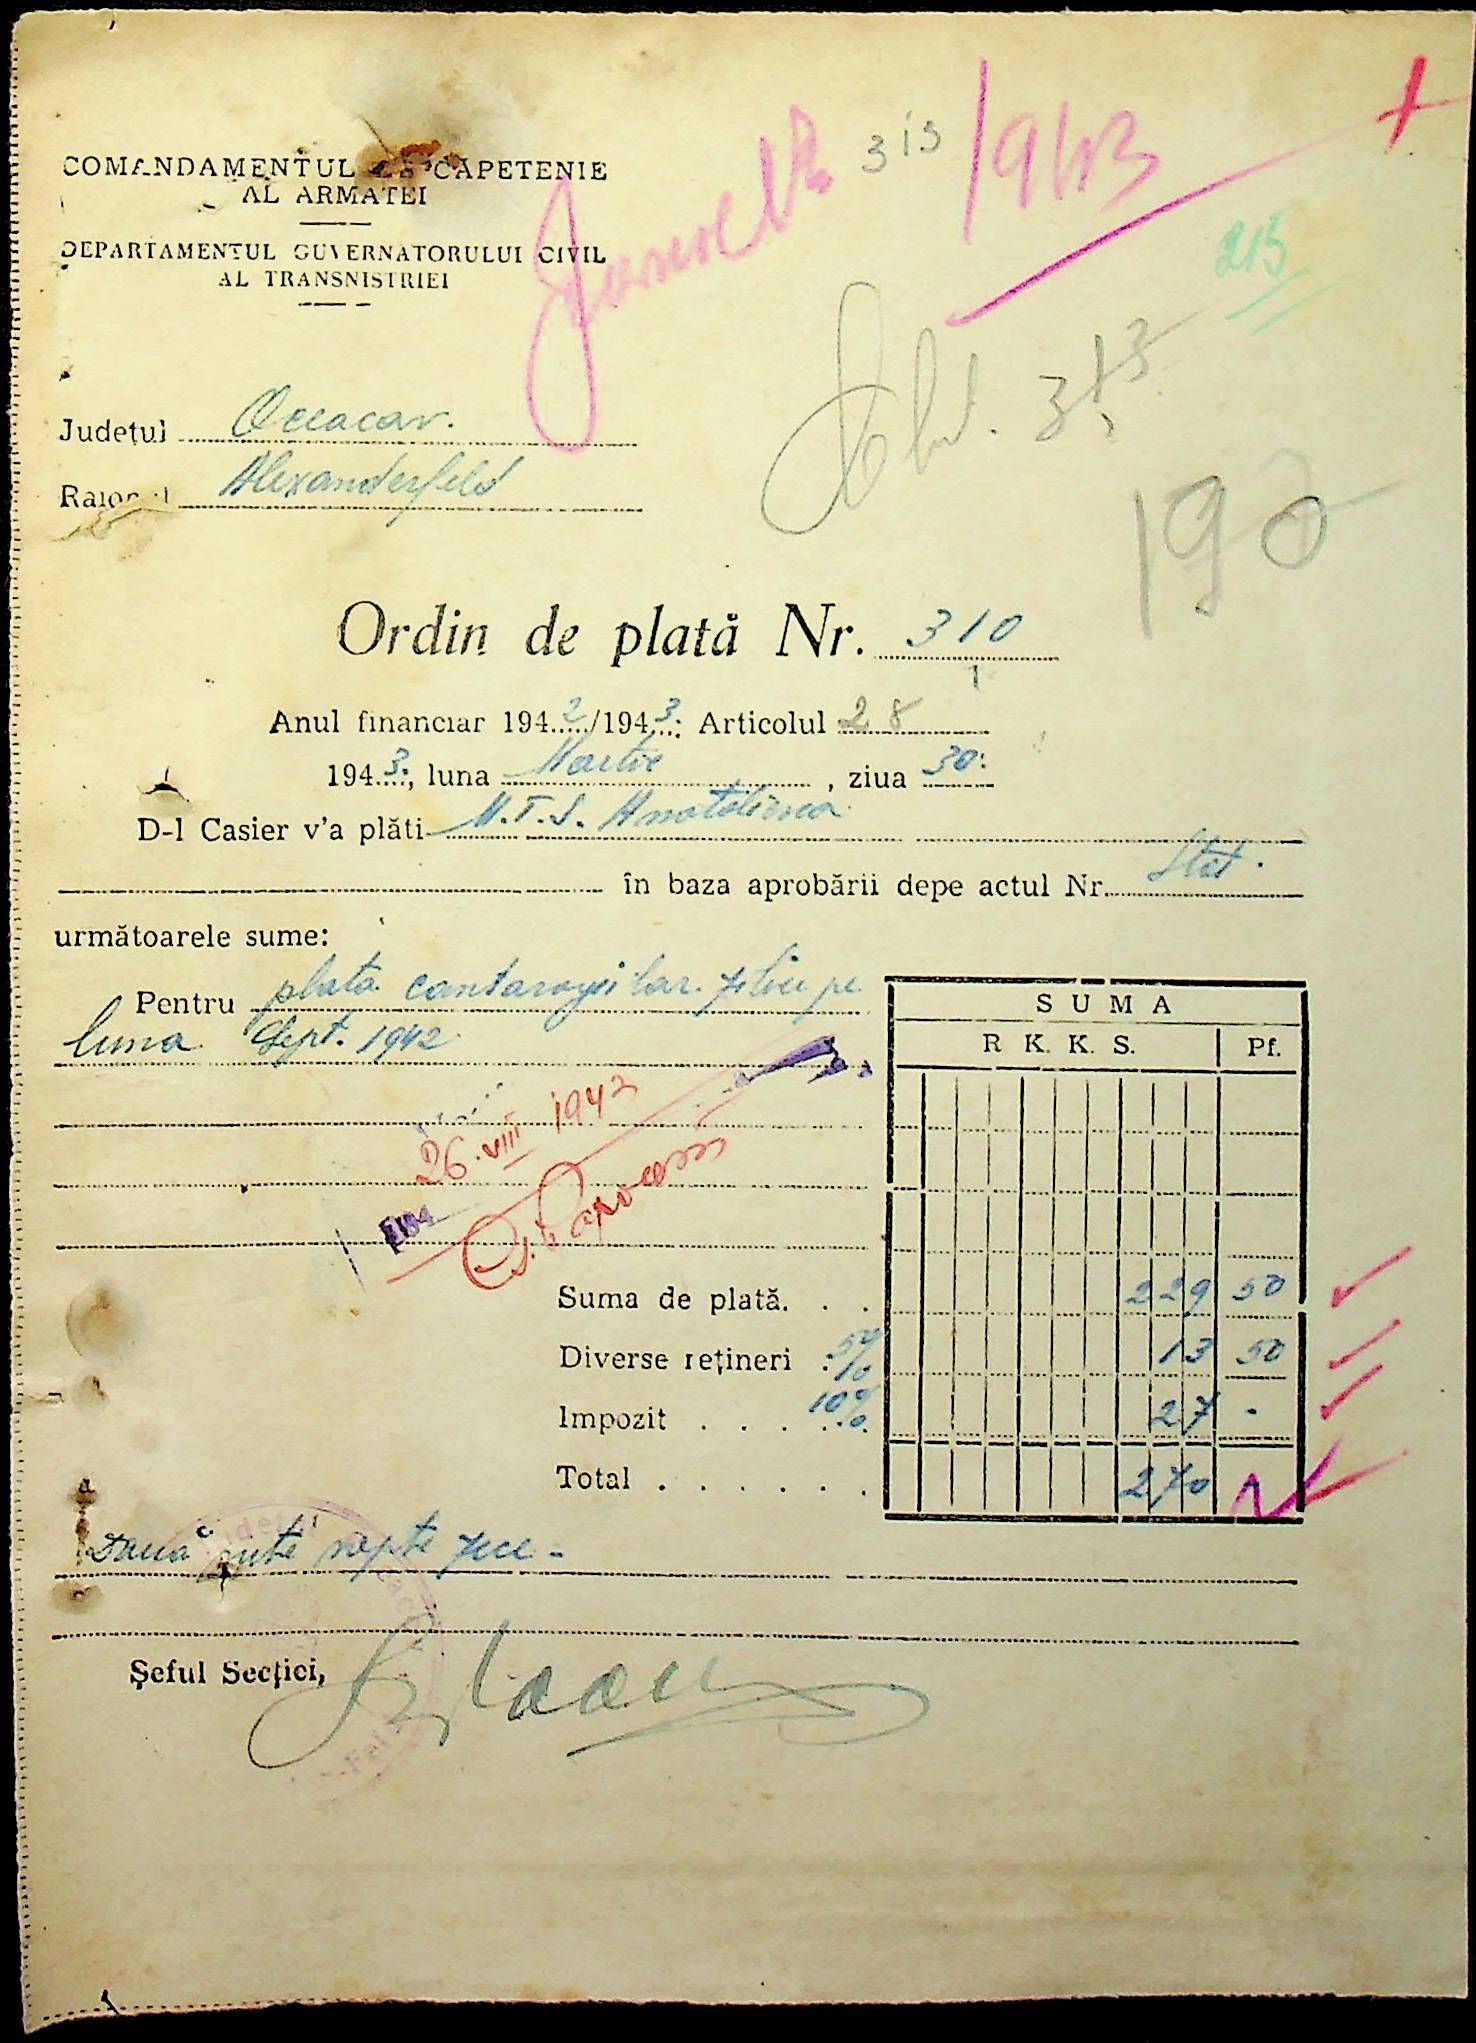 COMANDAMENTUL DE CAPETENIE
AL ARMATEI
DEPARTAMENTUL GUVERNATORULUI CIVIL
AL TRANSNISTRIEI
313 1943
215
313
190
Județul Oceacov.
Raionul Alexanderfeld
Ordin de plată Nr. 310
Anul financiar 1942/1943; Articolul 28
1943, luna Martie, ziua 30.
D-l Casier v'a plăti M.T.S. Anatolievca
în baza aprobării depe actul Nr. Stat.
următoarele sume:
Pentru plata cantaragiilor zilieri pe
luna Sept. 1942
SUMA
R. K. K. S. Pf.
26.VIII 1942
Suma de plată. . . 229 50
Diverse rețineri 5% 13 50
Impozit . . . 10% 27 -
Total . . . . . . 270
Două sute șapte zeci -
Șeful Secției,